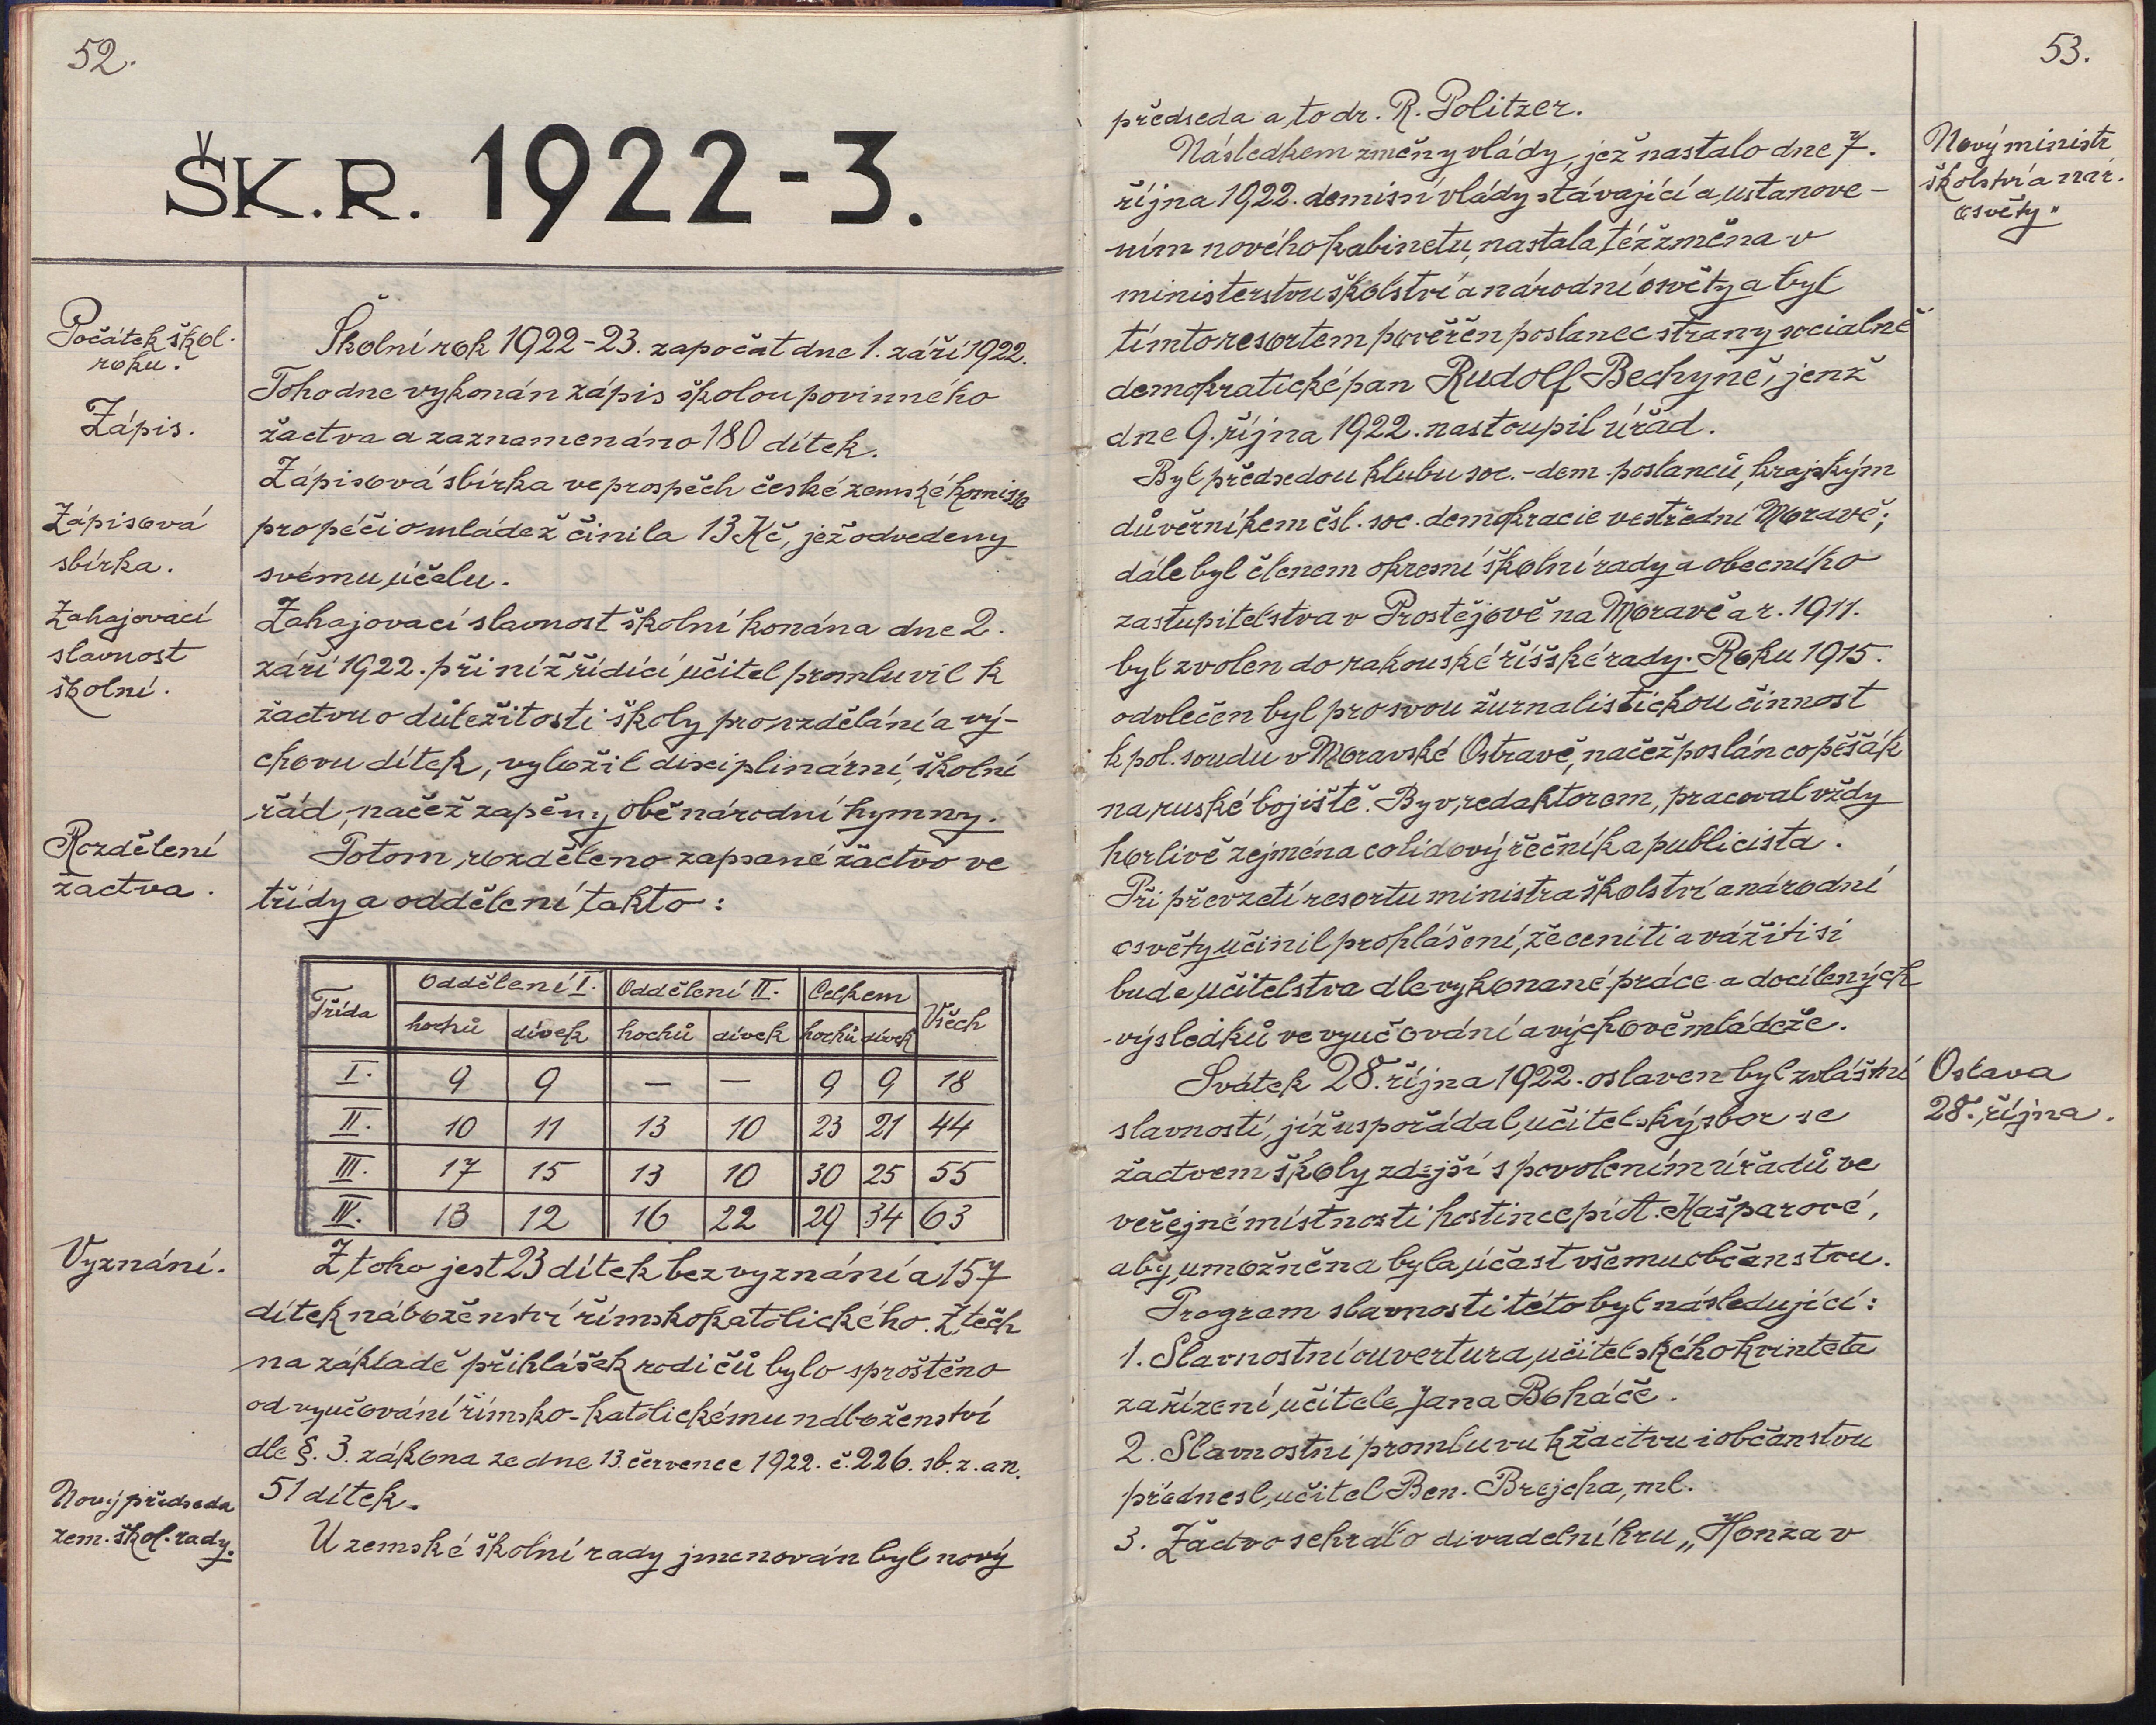 52.
ŠK. R. 1922-3.
Počátek škol.
roku.
Školní rok 1922-23. započat dne 1. září 1922.
Tohodne vykonán zápis školou povinného
Zápis.
žactva a zaznamenáno 180 dítek.
Zápisová sbírka ve prospěch české zemské komise
Zápisová
sbírka.
pro péči o mládež činila 13 Kč, jež odvedeny
svému účelu.
Zahajovací
slavnost
školní.
Zahajovací slavnost školní konána dne 2.
září 1922. při níž řídící učitel promluvil k
žactvu o důležitosti školy pro vzdělání a vý-
chovu dítek, vyložil disciplinární, školní
řád, načež zapěny obě národní hymny.
Rozdělení
žactva.
Potom rozděleno zapsané žactvo ve
třídy a oddělení takto:
Třída Oddělení I. Oddělení II. Celkem Všech
hochů dívek hochů dívek hochů dívek
I. 9 9 — — 9 9 18
II. 10 11 13 10 23 21 44
III. 17 15 13 10 30 25 55
IV. 13 12 16 22 29 34 63
Vyznání.
Z toho jest 23 dítek bez vyznání a 157
dítek náboženství římskokatolického. Z těch
na základě přihlášek rodičů bylo sproštěno
od vyučování římsko-katolickému náboženství
dle §. 3. zákona ze dne 13. července 1922. č. 226. sb. z. a n.
51 dítek.
Nový předseda
zem. škol. rady.
U zemské školní rady jmenován byl nový
53.
předseda a to dr. R. Politzer.
Nový ministr
školství a nár.
osvěty"
Následkem změny vlády, jež nastalo dne 7.
října 1922. demisí vlády stávající a ustanove-
ním nového kabinetu, nastala též změna v
ministerstvu školství a národní osvěty a byl
tímto resortem pověřen poslanec strany socialně
demokratické pan Rudolf Bechyně, jenž
dne 9. října 1922. nastoupil úřad.
Byl předsedou klubu soc.-dem. poslanců, krajským
důvěrníkem čsl. soc. demokracie ve střední Moravě;
dále byl členem okresní školní rady a obecního
zastupitelstva v Prostějově na Moravě a r. 1911.
byl zvolen do rakouské říšské rady. Roku 1915.
odvlečen byl pro svou žurnalistickou činnost
k pol. soudu v Moravské Ostravě, načež poslán co pěšák
na ruské bojiště. Byv redaktorem, pracoval vždy
horlivě zejména co lidový řečník a publicista.
Při převzetí resortu ministra školství a národní
osvěty učinil prohlášení, že ceniti a vážiti si
bude učitelstva dle vykonané práce a docílených
výsledků ve vyučování a výchově mládeže.
Oslava
28. října.
Svátek 28. října 1922. oslaven byl zvláštní
slavností, již uspořádal učitelský sbor se
žactvem školy zdejší s povolením úřadů ve
veřejné místnosti hostince pí A. Kašparové,
aby umožněna byla účast všemu občanstvu.
Program slavnosti této byl následující:
1. Slavnostní ouvertura učitelského kvinteta
za řízení učitele Jana Boháče.
2. Slavnostní promluvu k žactvu i občanstvu
přednesl učitel Ben. Brejcha, ml.
3. Žactvo sehrálo divadelní hru „Honza v